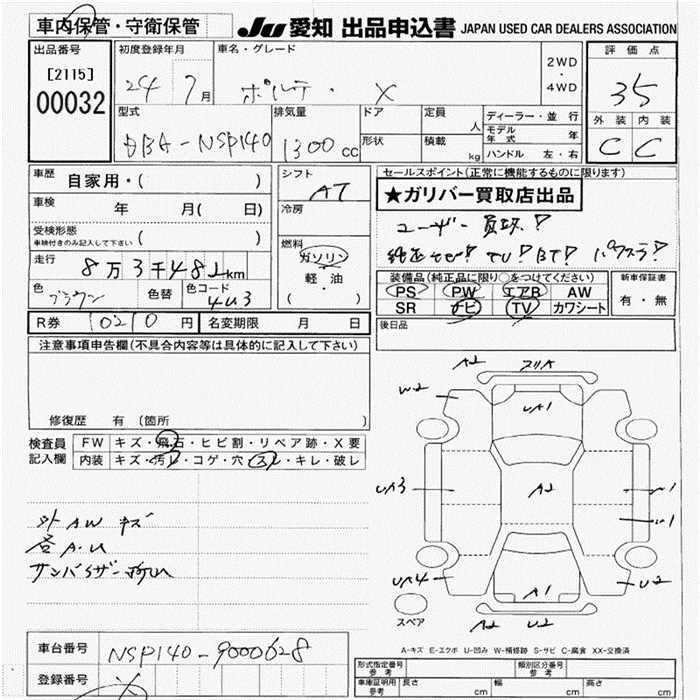 車内保管・守衛保管
JU 愛知 出品申込書 JAPAN USED CAR DEALERS ASSOCIATION
出品番号
[2115]
00032
初度登録年月
24 7月
車名・グレード
ポルテ・ X
2WD
・
4WD
評価点
35
外装 内装
C C
型式
DBA-NSP140
排気量
1300cc
ドア
形状
定員
人
積載
kg
ディーラー・並行
モデル年式 年
ハンドル 左・右
車歴
自家用・( )
車検
年 月( 日)
受検形態
車検付きのみ記入して下さい ( )
走行
8万3千482km
色
ブラウン
色替
色コード
4U3
シフト
AT
冷房
燃料
ガソリン
・
軽油
( ・ )
セールスポイント(正常に機能するものに限ります)
★ガリバー買取店出品
ユーザー買取!
純正ナビ! TV! BT! パワスラ!
装備品(純正品に限り○をつけてください)
PS PW エアB AW
SR ナビ TV カワシート
新車保証書
有・無
R券 10210円
名変期限 月 日
後日品
注意事項申告欄(不具合内容等は具体的に記入して下さい)
修復歴 有 (箇所 )
検査員
記入欄
FW キズ・飛石・ヒビ割・リペア跡・X要
内装 キズ・汚レ・コゲ・穴・スレ・キレ・破レ
外AWキズ
各A.U
A2
W2
UA1
UA3
A2
UA4
A1
U2
A2 U2
スペア
A-キズ E-エクボ U-凹み W-補修跡 S-サビ C-腐食 XX-交換済
車台番号
NSP140-9000628
登録番号
形式指定番号
参考
類別区分番号
参考
車庫証明用
参考
長さ cm
幅 cm
高さ cm